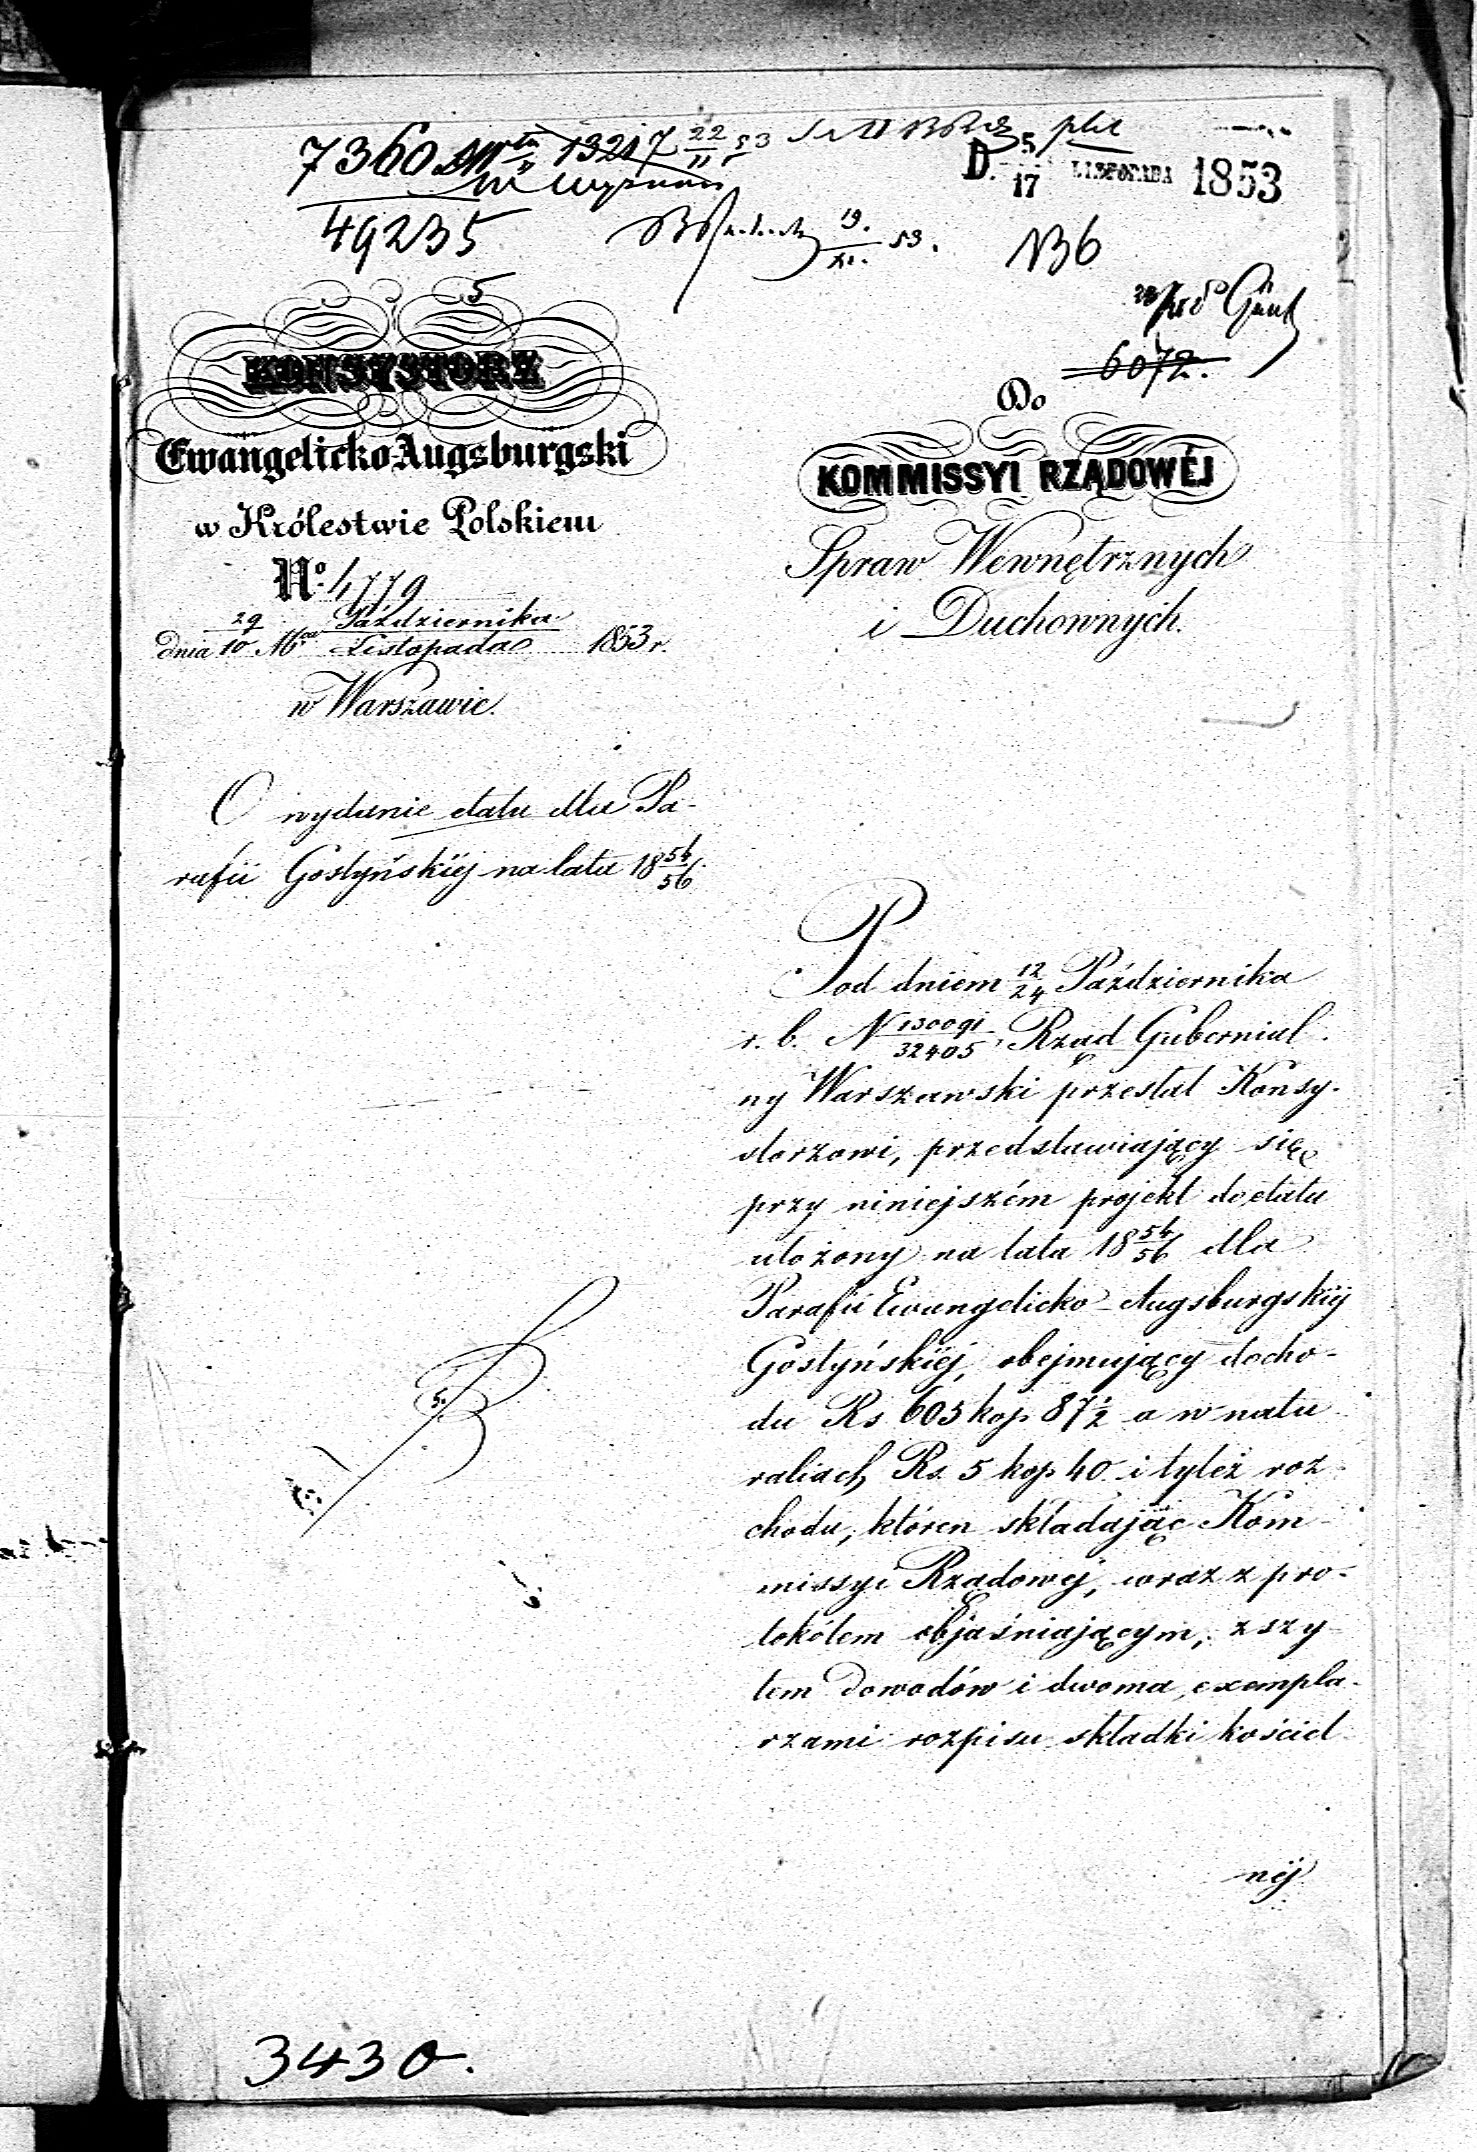 7360 13217 22/11 53
49235
D. 5/17 LISTOPADA 1853
19./XI. 53.
N36
6072.
5
KONSYSTORZ
Ewangelicko-Augsburgski
w Królestwie Polskiem
No. 4779
dnia 29/10 Mca Października/Listopada 1853 r.
w Warszawie.
Do
KOMMISSYI RZĄDOWÉJ
Spraw Wewnętrznych
i Duchownych.
O wydanie etatu dla Pa-
rafii Gostyńskiéj na lata 18 54/56.
Pod dniem 12/24 Października
r. b. N 130091/32405, Rząd Gubernial-
ny Warszawski przesłał Konsy-
storzowi, przedstawiający się
przy niniejszém projekt do etatu
ułożony na lata 18 54/56 dla
Parafii Ewangelicko-Augsburgskiéj
Gostyńskiéj, obejmujący docho-
du Rs 603 kop. 87 1/2 a w natu
raliach Rs. 5 kop 40. i tyleż roz-
chodu, któren składając Kom-
missyi Rządowéj, wraz z pro-
tokółem objaśniającym, zszy-
tem dowodów i dwoma exempla-
rzami rozpisu składki kościel-
néj
3430.